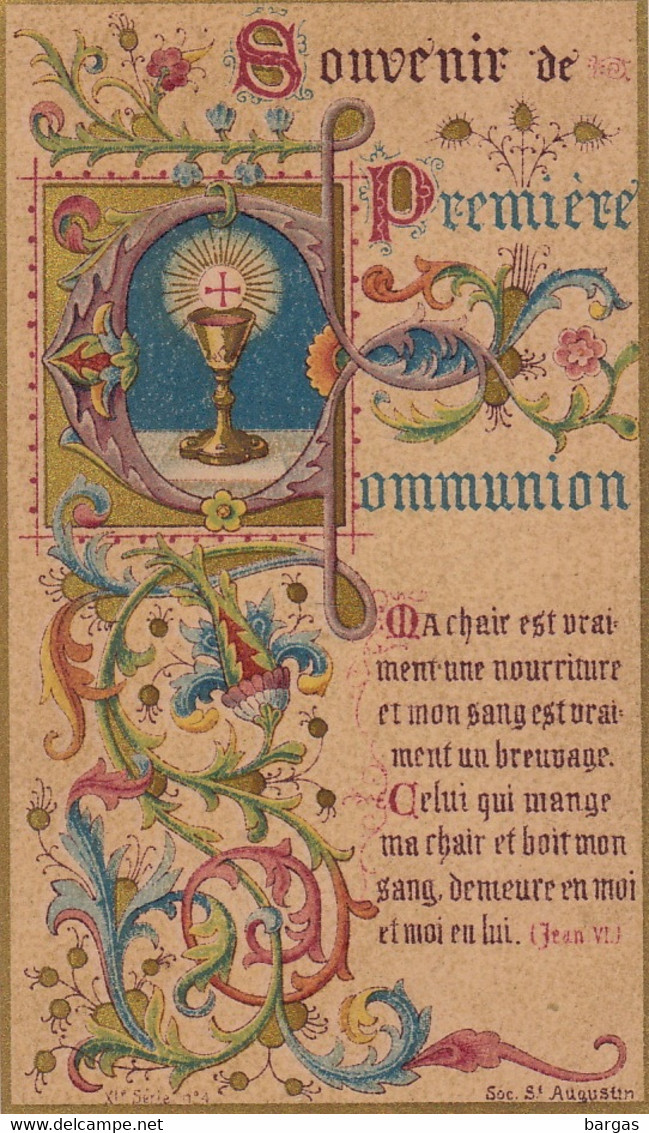 Souvenir de
Première
Communion
Ma chair est vrai-
ment une nourriture
et mon sang est vrai-
ment un breuvage.
Celui qui mange
ma chair et boit mon
sang, demeure en moi
et moi en lui. (Jean VI.)
XIe Série n°4
Soc. St Augustin
bargas